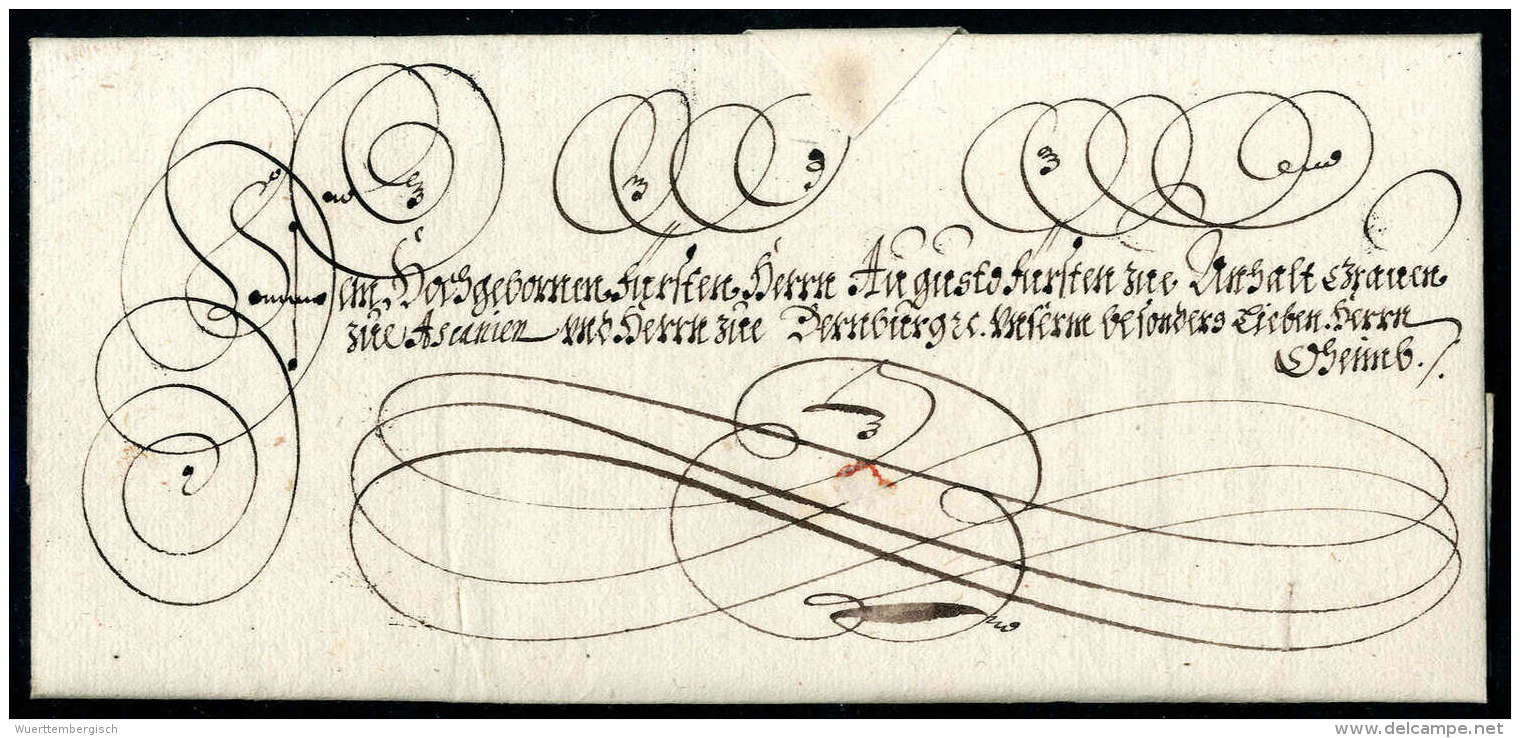 Dem Hochgebornen Fürsten Herrn Augusto Fürsten zue Anhalt Graven
zue Ascanien und Herrn zue Bernburg ꝛc. Unserm besonders Lieben Herrn
Oheimb ./.
Wuerttembergisch
www.delcampe.net